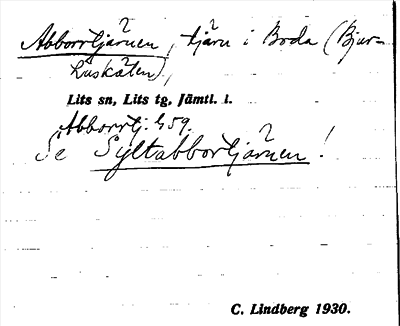 Abborrtjärnen, tjärn i Boda (Bjur=
Lits sn, Lits tg, Jämtl. l.
Abborrtj. G59.
Se Syltabbortjärnen!
C. Lindberg 1930.